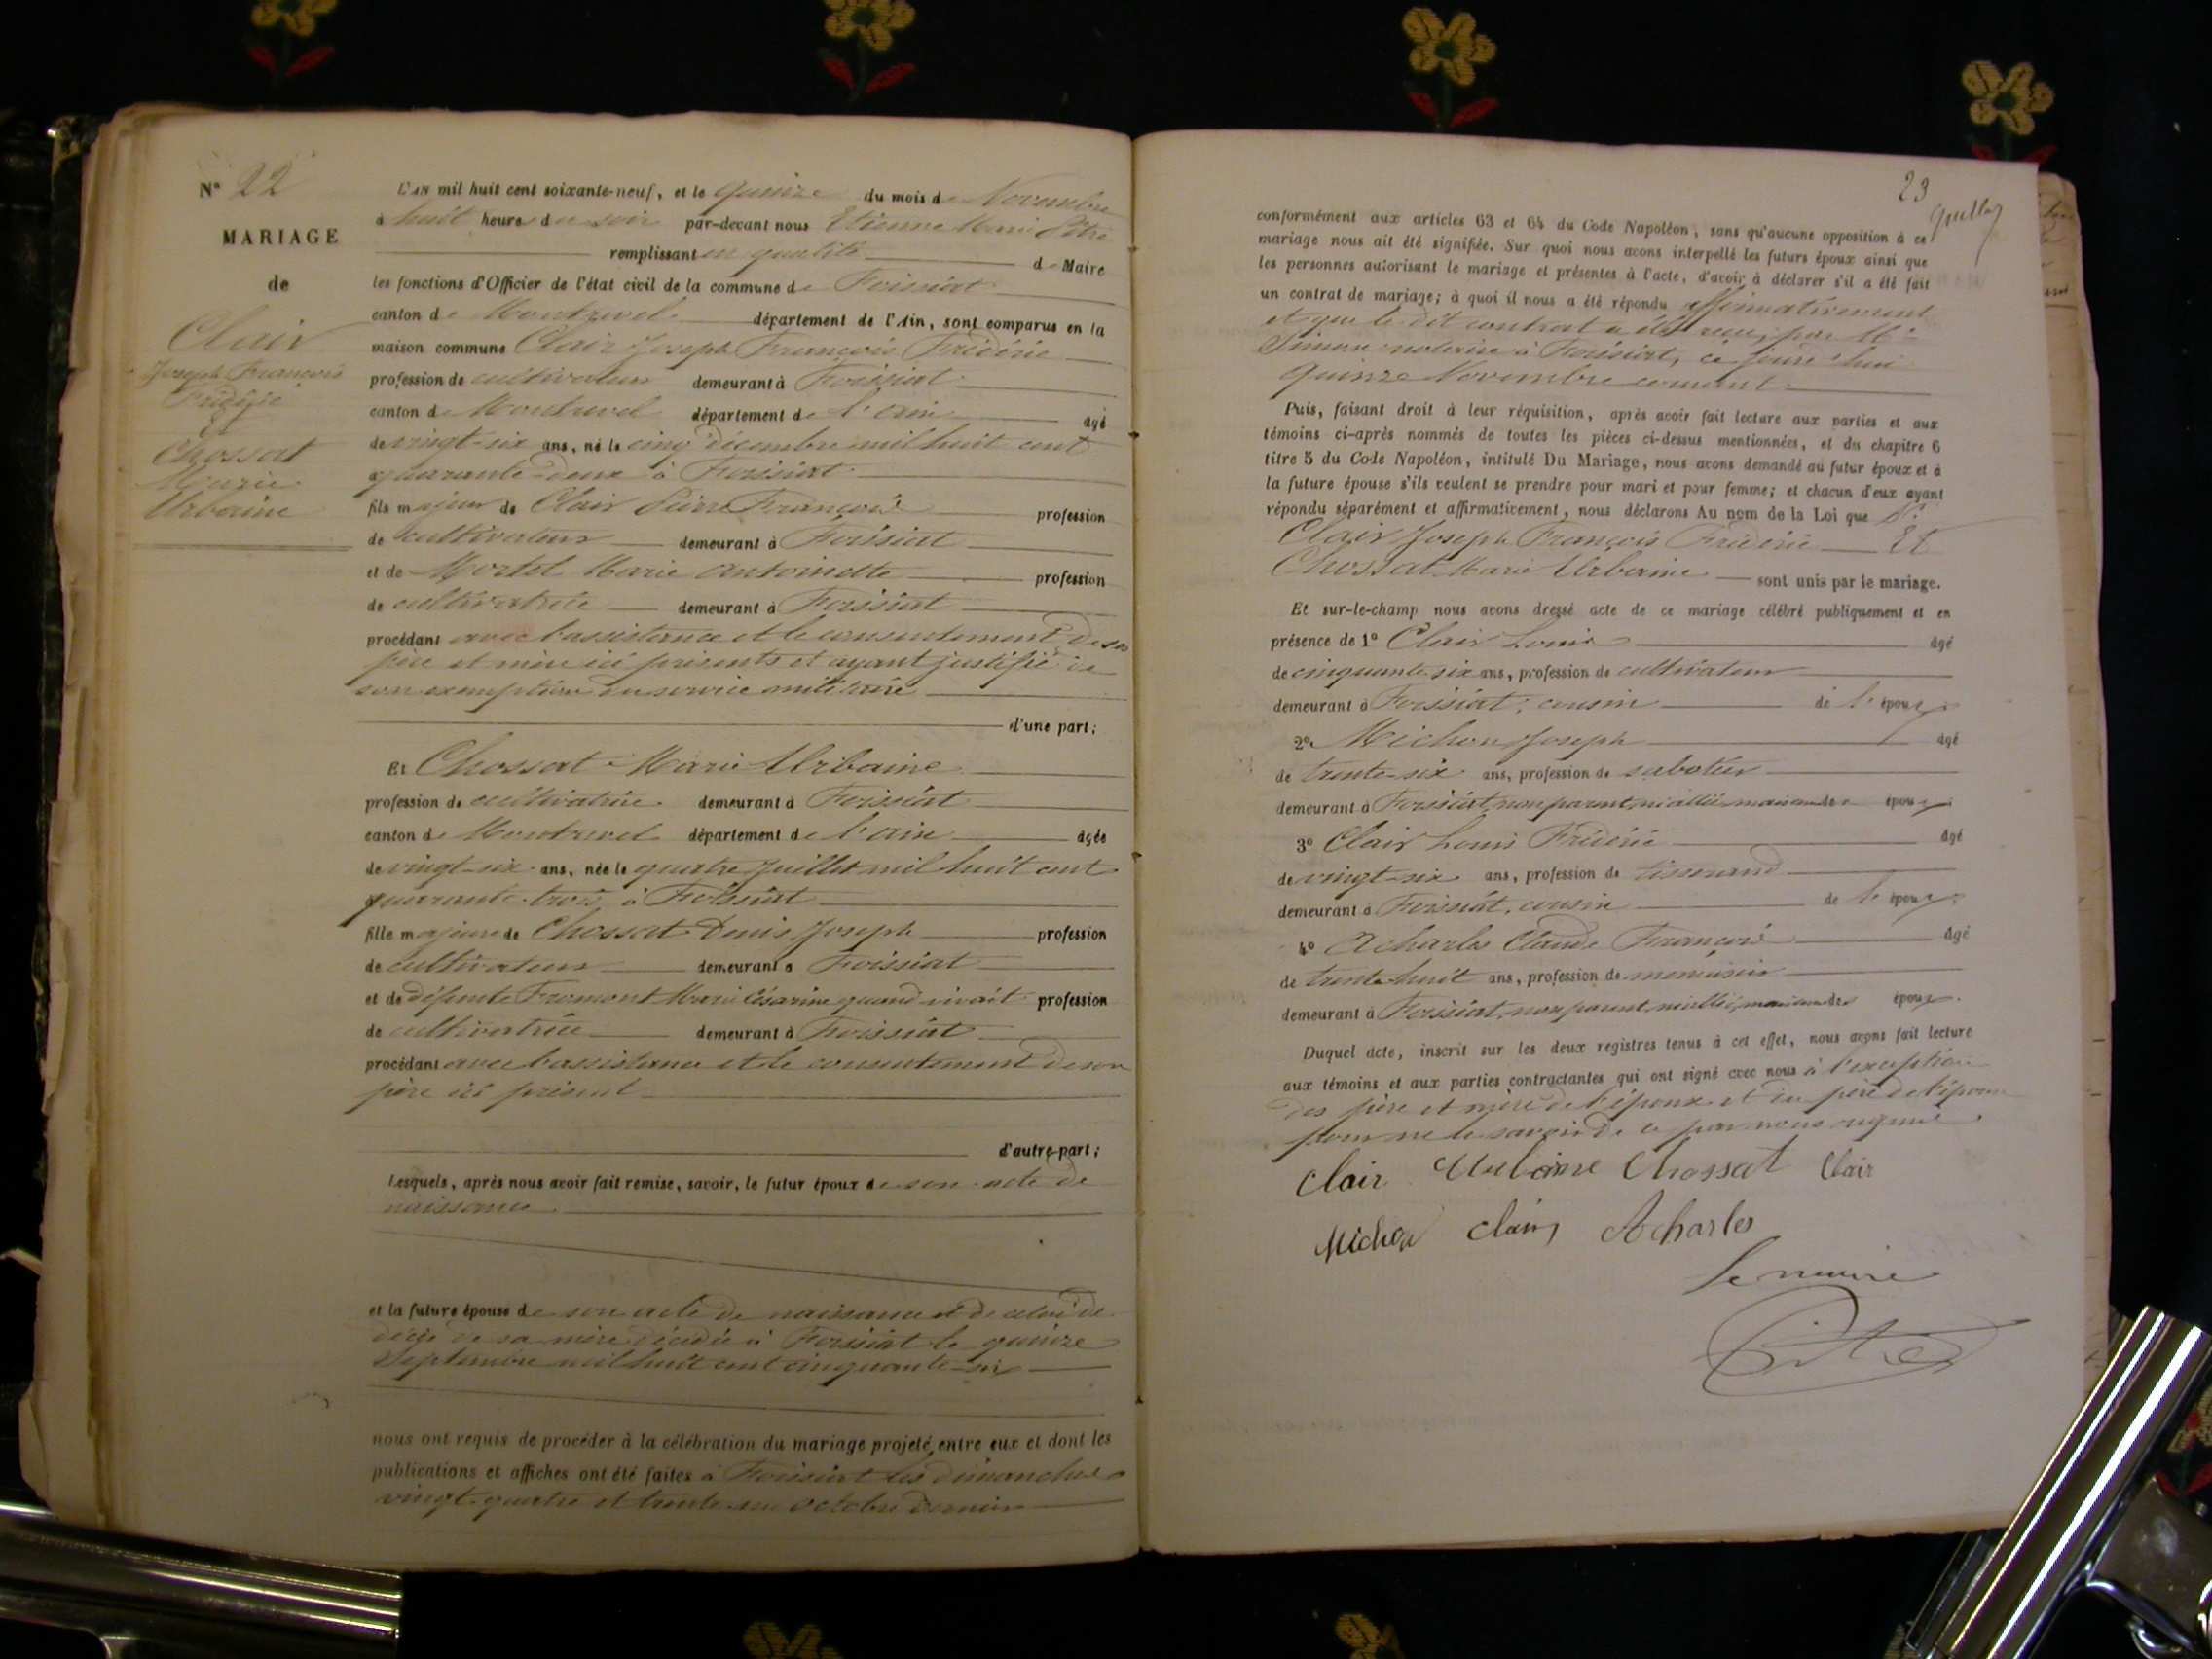 N° 22
MARIAGE
de
Clair
Joseph François
Frédéric
&
Chossat
Marie
Urbaine
L'AN mil huit cent soixante-neuf, et le quinze du mois de Novembre
à huit heure du soir par-devant nous Etienne Marie Pitre
remplissant en qualité de Maire
les fonctions d'Officier de l'état civil de la commune de Foissiat
canton de Montrevel département de l'Ain, sont comparus en la
maison commune Clair Joseph François Frédéric
profession de cultivateur demeurant à Foissiat
canton de Montrevel département de l'ain âgé
de vingt-six ans, né le cinq décembre mil huit cent
quarante-deux à Foissiat
fils majeur de Clair Pierre François profession
de cultivateur demeurant à Foissiat
et de Mortel Marie antoinette profession
de cultivatrice demeurant à Foissiat
procédant avec l'assistance et le consentement de ses
père et mère ici présents et ayant justifié de
son exemption du service militaire
d'une part;
Et Chossat Marie Urbaine
profession de cultivatrice demeurant à Foissiat
canton de Montrevel département de l'ain âgée
de vingt-six ans, née le quatre Juillet mil huit cent
quarante-trois à Foissiat
fille majeure de Chossat Denis Joseph profession
de cultivateur demeurant à Foissiat
et de défunte Fromont Marie Césarine quand vivait profession
de cultivatrice demeurant à Foissiat
procédant avec l'assistance et le consentement de son
père ici présent
d'autre part;
Lesquels, après nous avoir fait remise, savoir, le futur époux de son acte de
naissance
et la future épouse de son acte de naissance et de celui de
décès de sa mère décédée à Foissiat le quinze
Septembre mil huit cent cinquante-six
nous ont requis de procéder à la célébration du mariage projeté entre eux et dont les
publications et affiches ont été faites à Foissiat les dimanches
vingt-quatre et trente-un octobre dernier
23
conformément aux articles 63 et 64 du Code Napoléon, sans qu'aucune opposition à ce
mariage nous ait été signifiée. Sur quoi nous avons interpellé les futurs époux ainsi que
les personnes autorisant le mariage et présentes à l'acte, d'avoir à déclarer s'il a été fait
un contrat de mariage; à quoi il nous a été répondu affirmativement
et que le dit contrat a été reçu par Me
Simon notaire à Foissiat, ce jourd'hui
quinze Novembre courant
Puis, faisant droit à leur réquisition, après avoir fait lecture aux parties et aux
témoins ci-après nommés de toutes les pièces ci-dessus mentionnées, et du chapitre 6
titre 5 du Code Napoléon, intitulé Du Mariage, nous avons demandé au futur époux et à
la future épouse s'ils veulent se prendre pour mari et pour femme; et chacun d'eux ayant
répondu séparément et affirmativement, nous déclarons Au nom de la Loi que
Clair Joseph François Frédéric Et
Chossat Marie Urbaine sont unis par le mariage.
Et sur-le-champ nous avons dressé acte de ce mariage célébré publiquement et en
présence de 1° Clair Louis âgé
de cinquante-six ans, profession de cultivateur
demeurant à Foissiat, cousin de l'époux
2° Michon Joseph âgé
de trente-six ans, profession de sabotier
demeurant à Foissiat, non parent, ni allié, mais ami des époux
3° Clair Louis Frédéric âgé
de vingt-six ans, profession de tisserand
demeurant à Foissiat, cousin de l'époux
4° Acharles Claude François âgé
de trente-huit ans, profession de menuisier
demeurant à Foissiat, non parent, ni allié, mais ami des époux.
Duquel acte, inscrit sur les deux registres tenus à cet effet, nous avons fait lecture
aux témoins et aux parties contractantes qui ont signé avec nous à l'exception
des père et mère de l'époux et du père de l'épouse
pour ne le savoir de ce par nous requis.
Clair Urbaine Chossat Clair
Michon Clair Acharles
Le maire